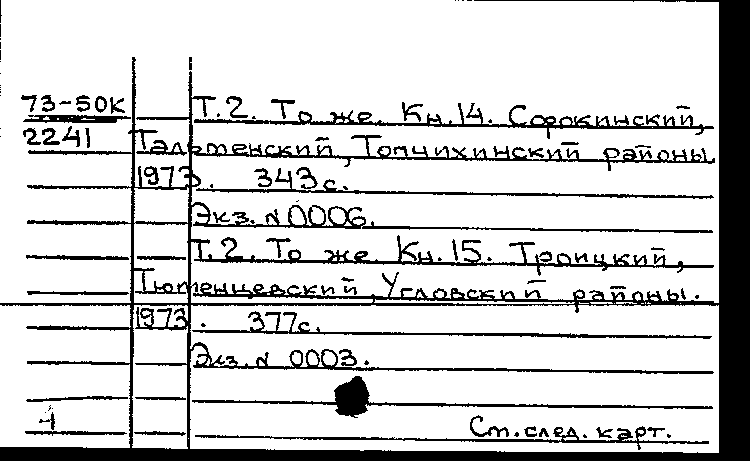 73-50К Т.2. То же. Кн.14. Сорокинский,
2241 Тальменский, Топчихинский районы
1973. 343с.
Экз. № 0006.
Т.2. То же Кн.15. Троицкий,
Тюменцевский, Угловский районы.
1973. 377с.
Экз. № 0003.
4 См. след. карт.